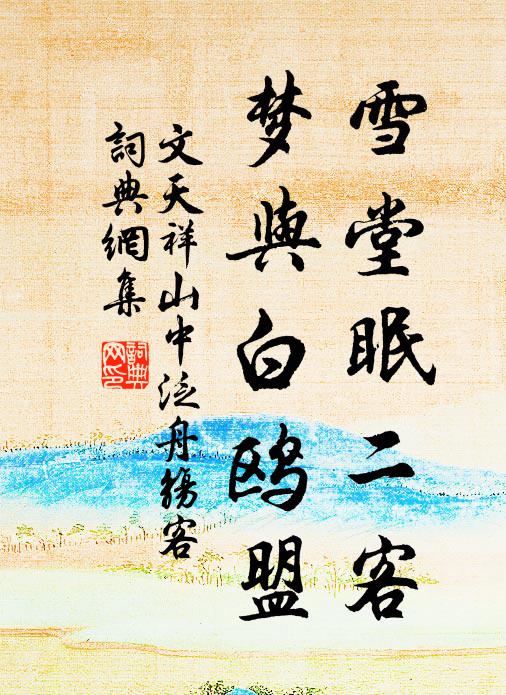 雪堂眠二客
梦與白鸥盟
文天祥山中泛舟觞客
詞典網集
詞典
网印